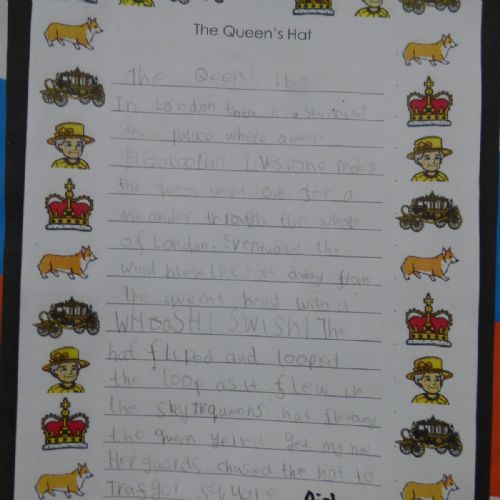 The Queen's Hat
The Qeen's Hat
In London there is a stuning
stone palace where queen
lives. One
the queen went out for a
meander through the whole
of London. Eventually the
wind blew the hat away from
the queens head with a
WHOOSH! SWISH! The
hat fliped and looped
the loop as it flew in
the sky queens hat
the queen yelled get my hat
Her guards chased the hat to